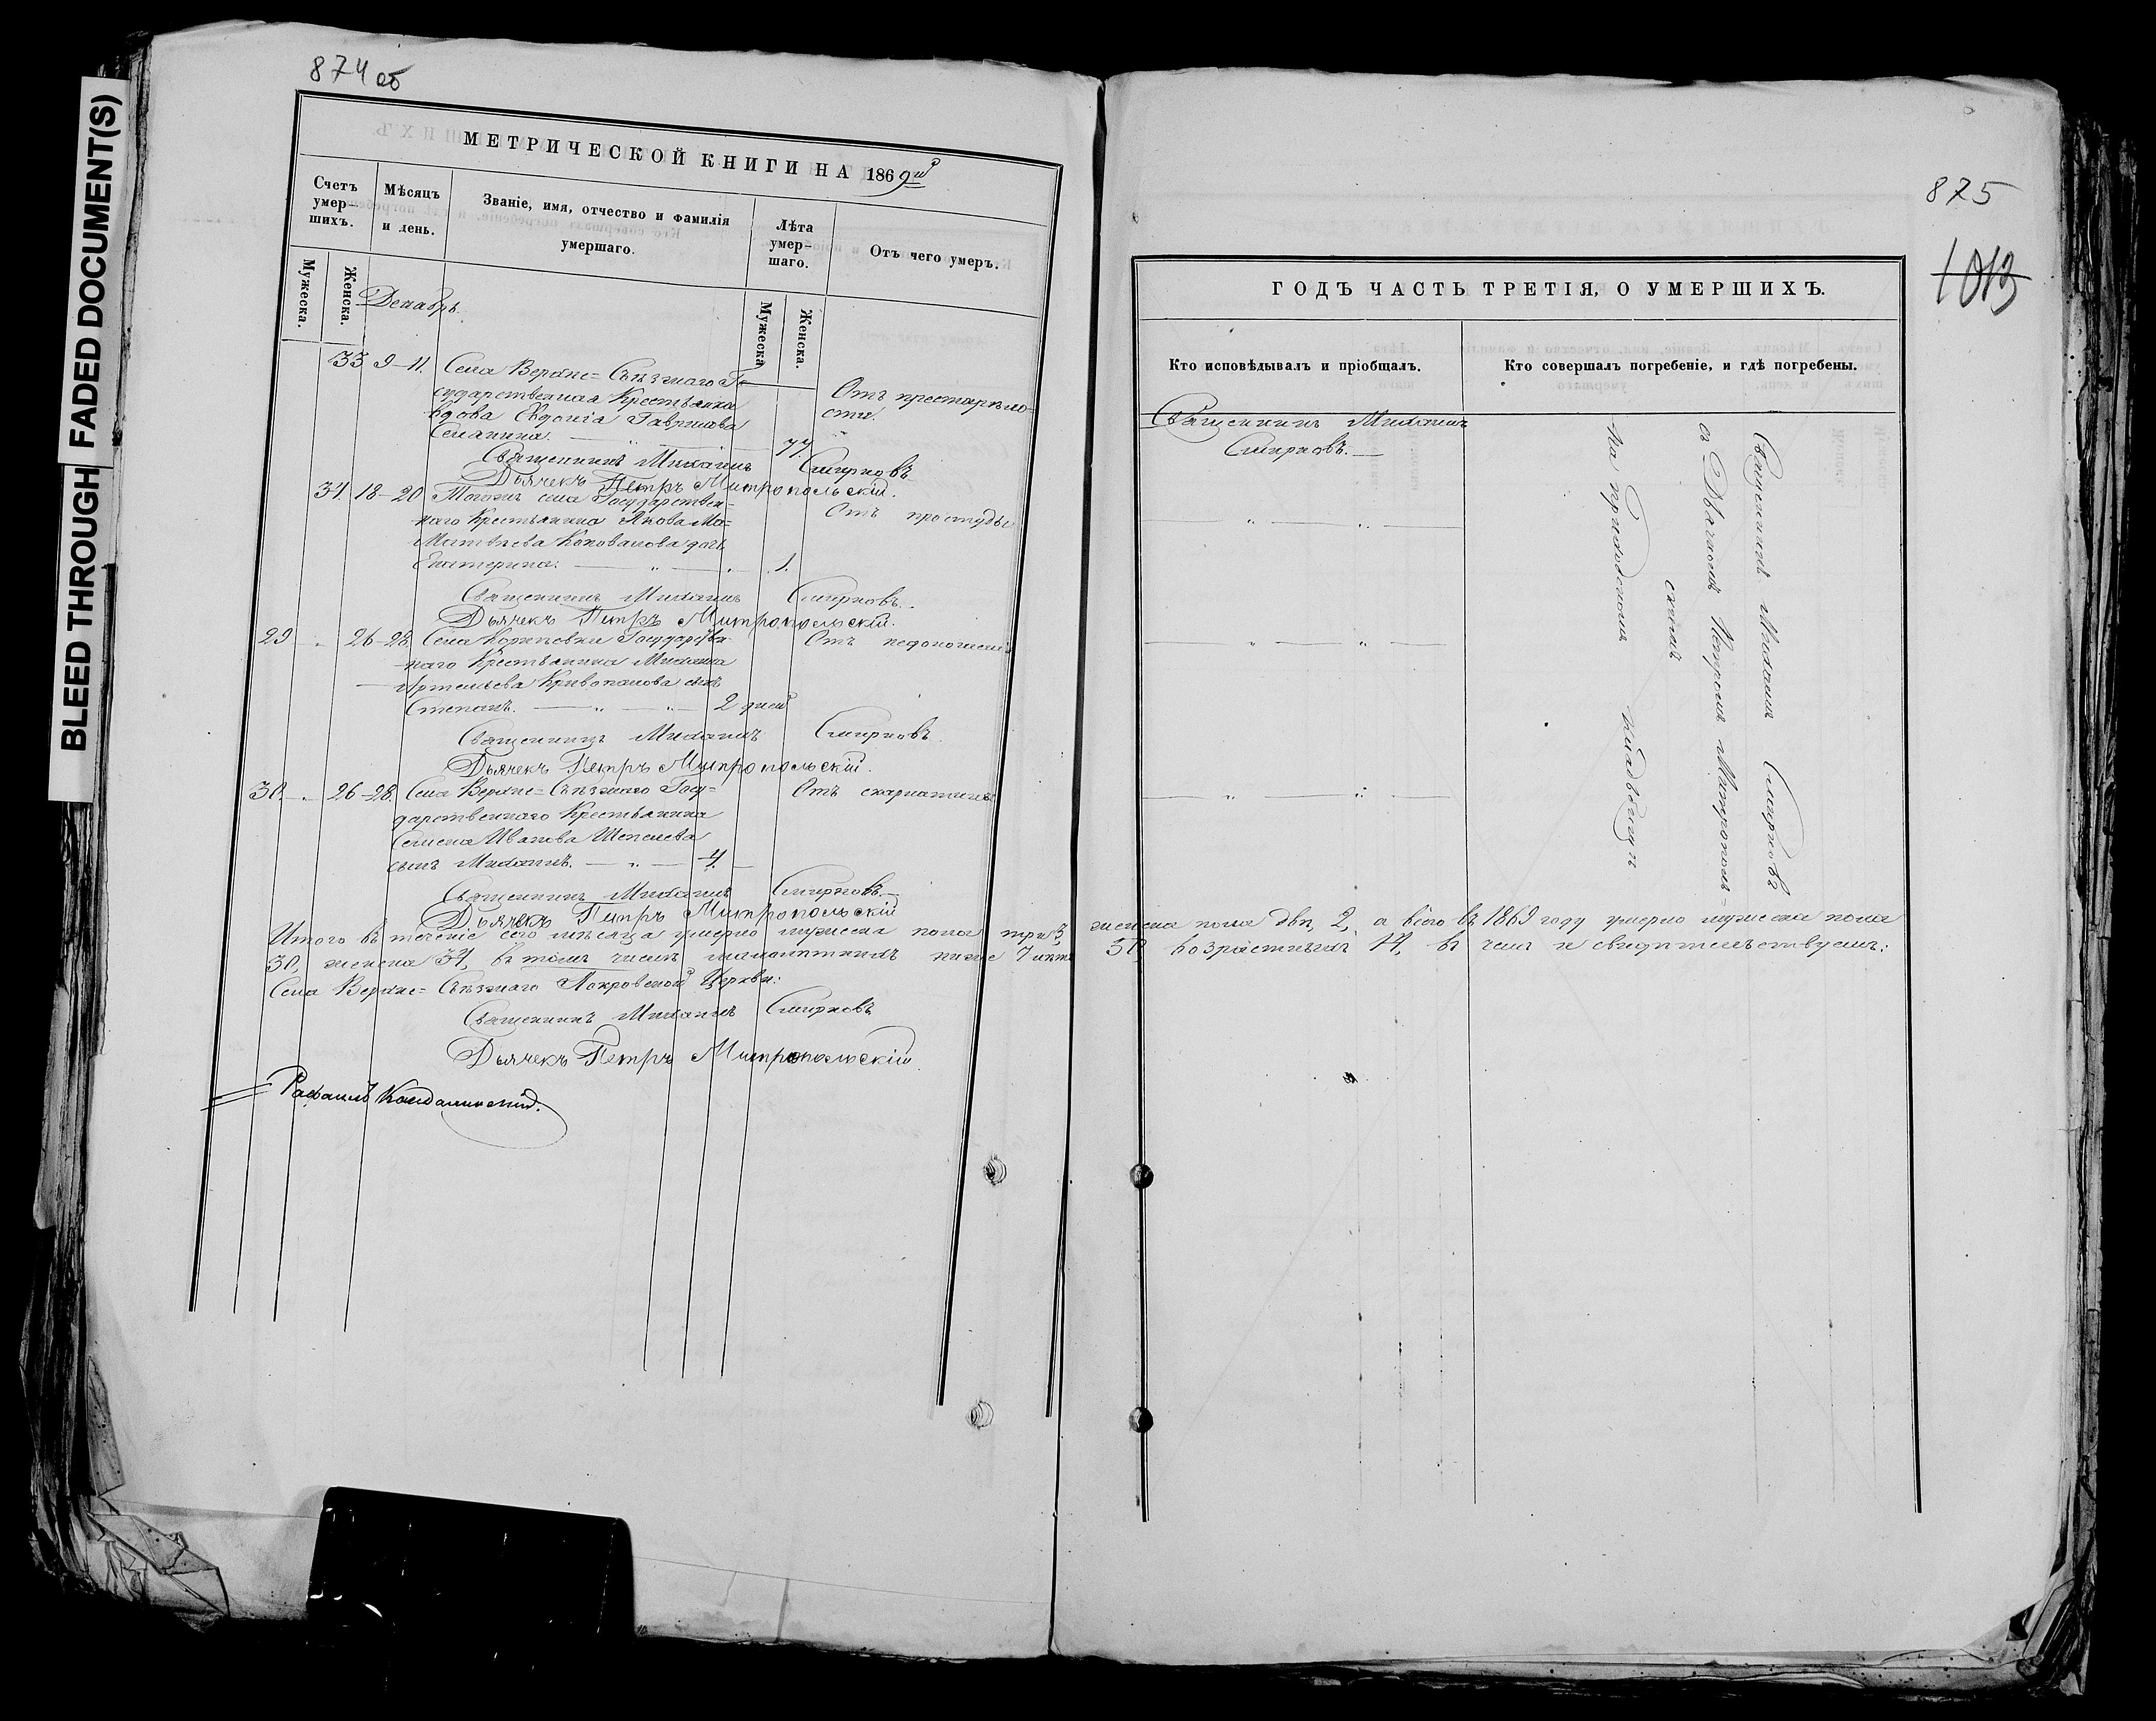 BLEED THROUGH
FADED DOCUMENT(S)
874 об
МЕТРИЧЕСКОЙ КНИГИ НА 1869й
Счетъ умер-
шихъ.
Мѣсяцъ
и день.
Званіе, имя, отчество и фамилія
умершаго.
Лѣта
умер-
шаго.
Отъ чего умеръ.
Мужеска.
Женска.
Мужеска
Женска.
Декабрь.
33 9–11. Села Верхне=Съѣзжаго Го-
сударственная Крестьянка Отъ престарѣло-
вдова Евдокія Гаврилова сти.
77.
Священникъ Михаилъ Смирновъ
Дьячекъ Петръ Митропольскій.
34. 18–20 Тогожъ села Государствен- Отъ простуды
наго Крестьянина Якова Ма=
Матвѣева Коновалова дочь
Екатерина. 1.
Священникъ Михаилъ Смирновъ.
Дьячекъ Петръ Митропольскій.
29 26–28. Села Корнѣевки Государствен-
наго Крестьянина Михаила
Артемьева Кривопалова сынъ
Степанъ. 2 дней
Священникъ Михаилъ Смирновъ.
Дьячекъ Петръ Митропольскій.
30. 26–28. Села Верхне=Съѣзжаго Госу= Отъ скарлатины
дарственнаго Крестьянина
Семена Иванова Шепелева
сынъ Михаилъ. 4.
Священникъ Михаилъ Смирновъ.
Дьячекъ Петръ Митропольскій
Итого въ теченіе сего мѣсяца умерло мужеска пола три 3, женска пола двѣ, 2, а всего въ 1869 году умерло мужеска пола
30, женска 34, въ томъ числѣ малолѣтнихъ ниже 7 лѣтъ 50, возрастныхъ 14, въ чемъ и свидѣтельствуемъ:
Села Верхне=Съѣзжаго Покровской Церкви:
Священникъ Михаилъ Смирновъ
Дьячекъ Петръ Митропольскій.
875
1013
ГОДЪ ЧАСТЬ ТРЕТІЯ, О УМЕРШИХЪ.
Кто исповѣдывалъ и пріобщалъ.
Кто совершалъ погребеніе, и гдѣ погребены.
Священникъ Михаилъ
Смирновъ.
Священникъ Михаилъ Смирновъ
съ Дьячкомъ Петромъ Митрополь=
скимъ
на приходскомъ кладбищѣ